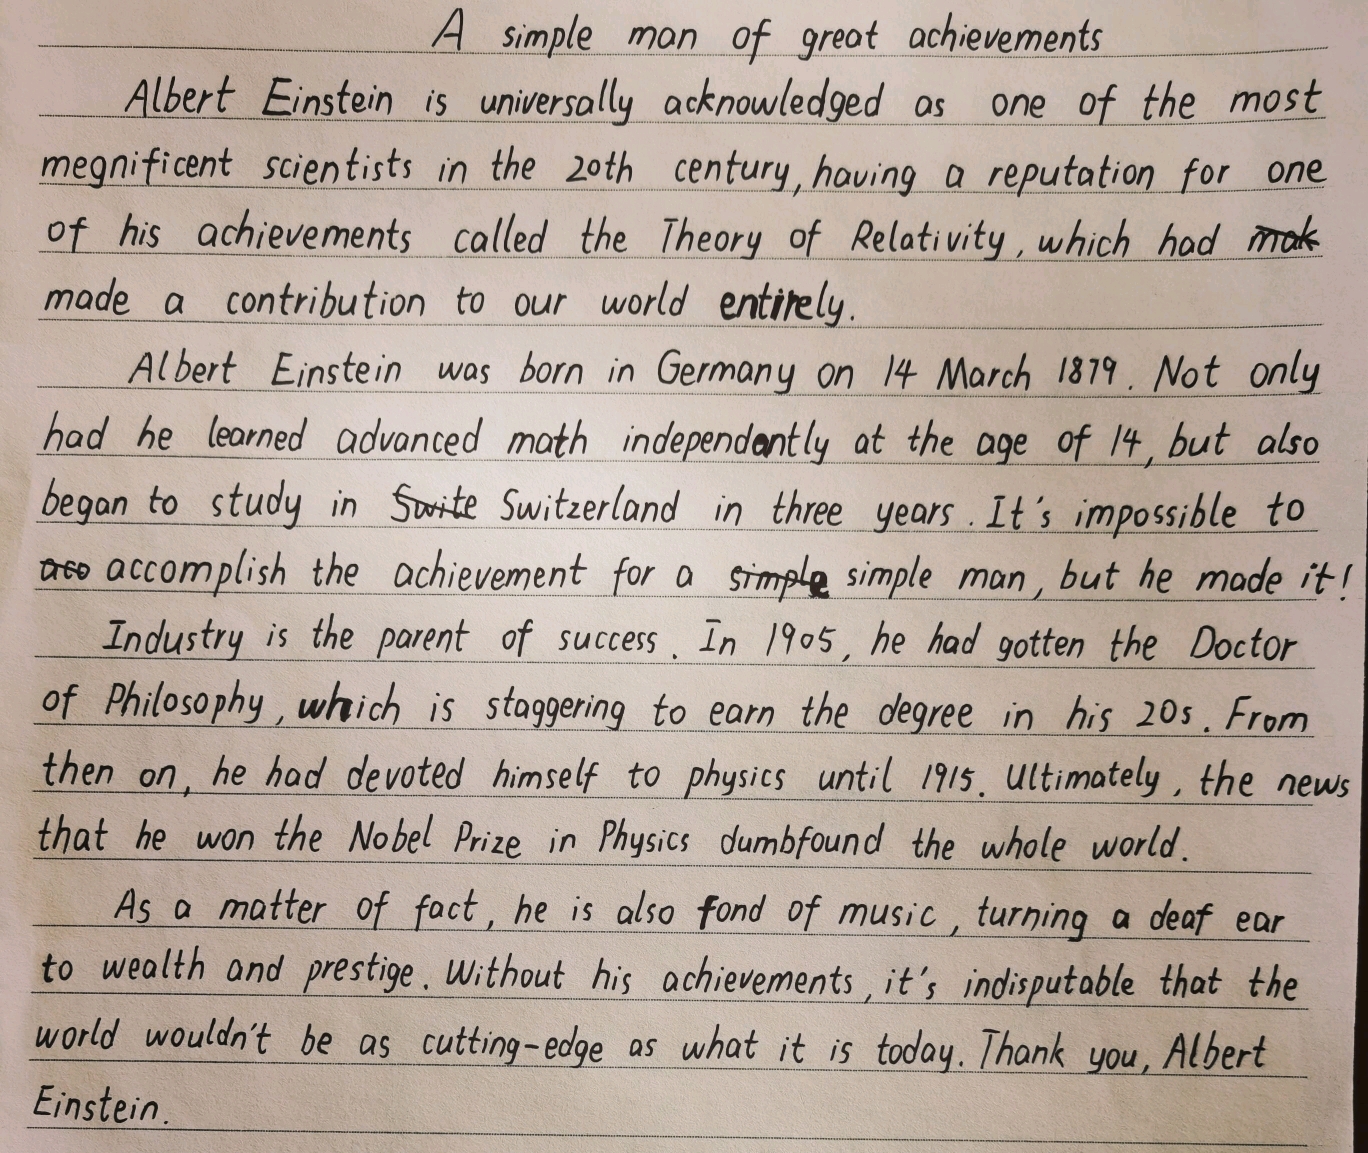 A simple man of great achievements
Albert Einstein is universally acknowledged as one of the most
megnificent scientists in the 20th century, having a reputation for one
of his achievements called the Theory of Relativity, which had mak
made a contribution to our world entirely.
Albert Einstein was born in Germany on 14 March 1879. Not only
had he learned advanced math independently at the age of 14, but also
began to study in Swite Switzerland in three years. It's impossible to
aco accomplish the achievement for a simple simple man, but he made it!
Industry is the parent of success. In 1905, he had gotten the Doctor
of Philosophy, which is staggering to earn the degree in his 20s. From
then on, he had devoted himself to physics until 1915. Ultimately, the news
that he won the Nobel Prize in Physics dumbfound the whole world.
As a matter of fact, he is also fond of music, turning a deaf ear
to wealth and prestige. Without his achievements, it's indisputable that the
world wouldn't be as cutting-edge as what it is today. Thank you, Albert
Einstein.